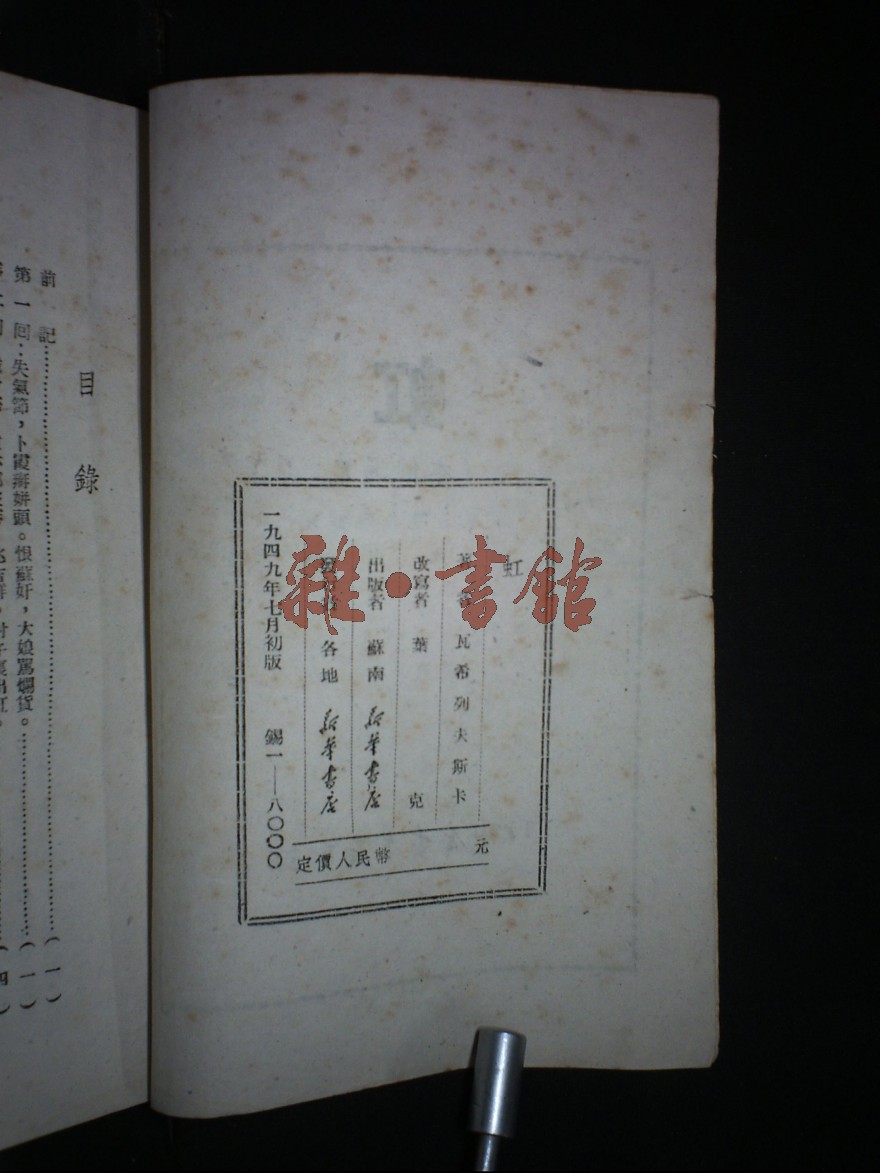 虹
著者 瓦希列夫斯卡
改寫者 葉克
出版者 蘇南新華書店
各地新華書店
一九四九年七月初版 錫一——八〇〇〇
定價人民幣 元
雜·書館
目錄
前記……(一)
第一回:失氣節,卜霞辮姘頭。恨蘇奸,大娘罵爛貨。……(一)